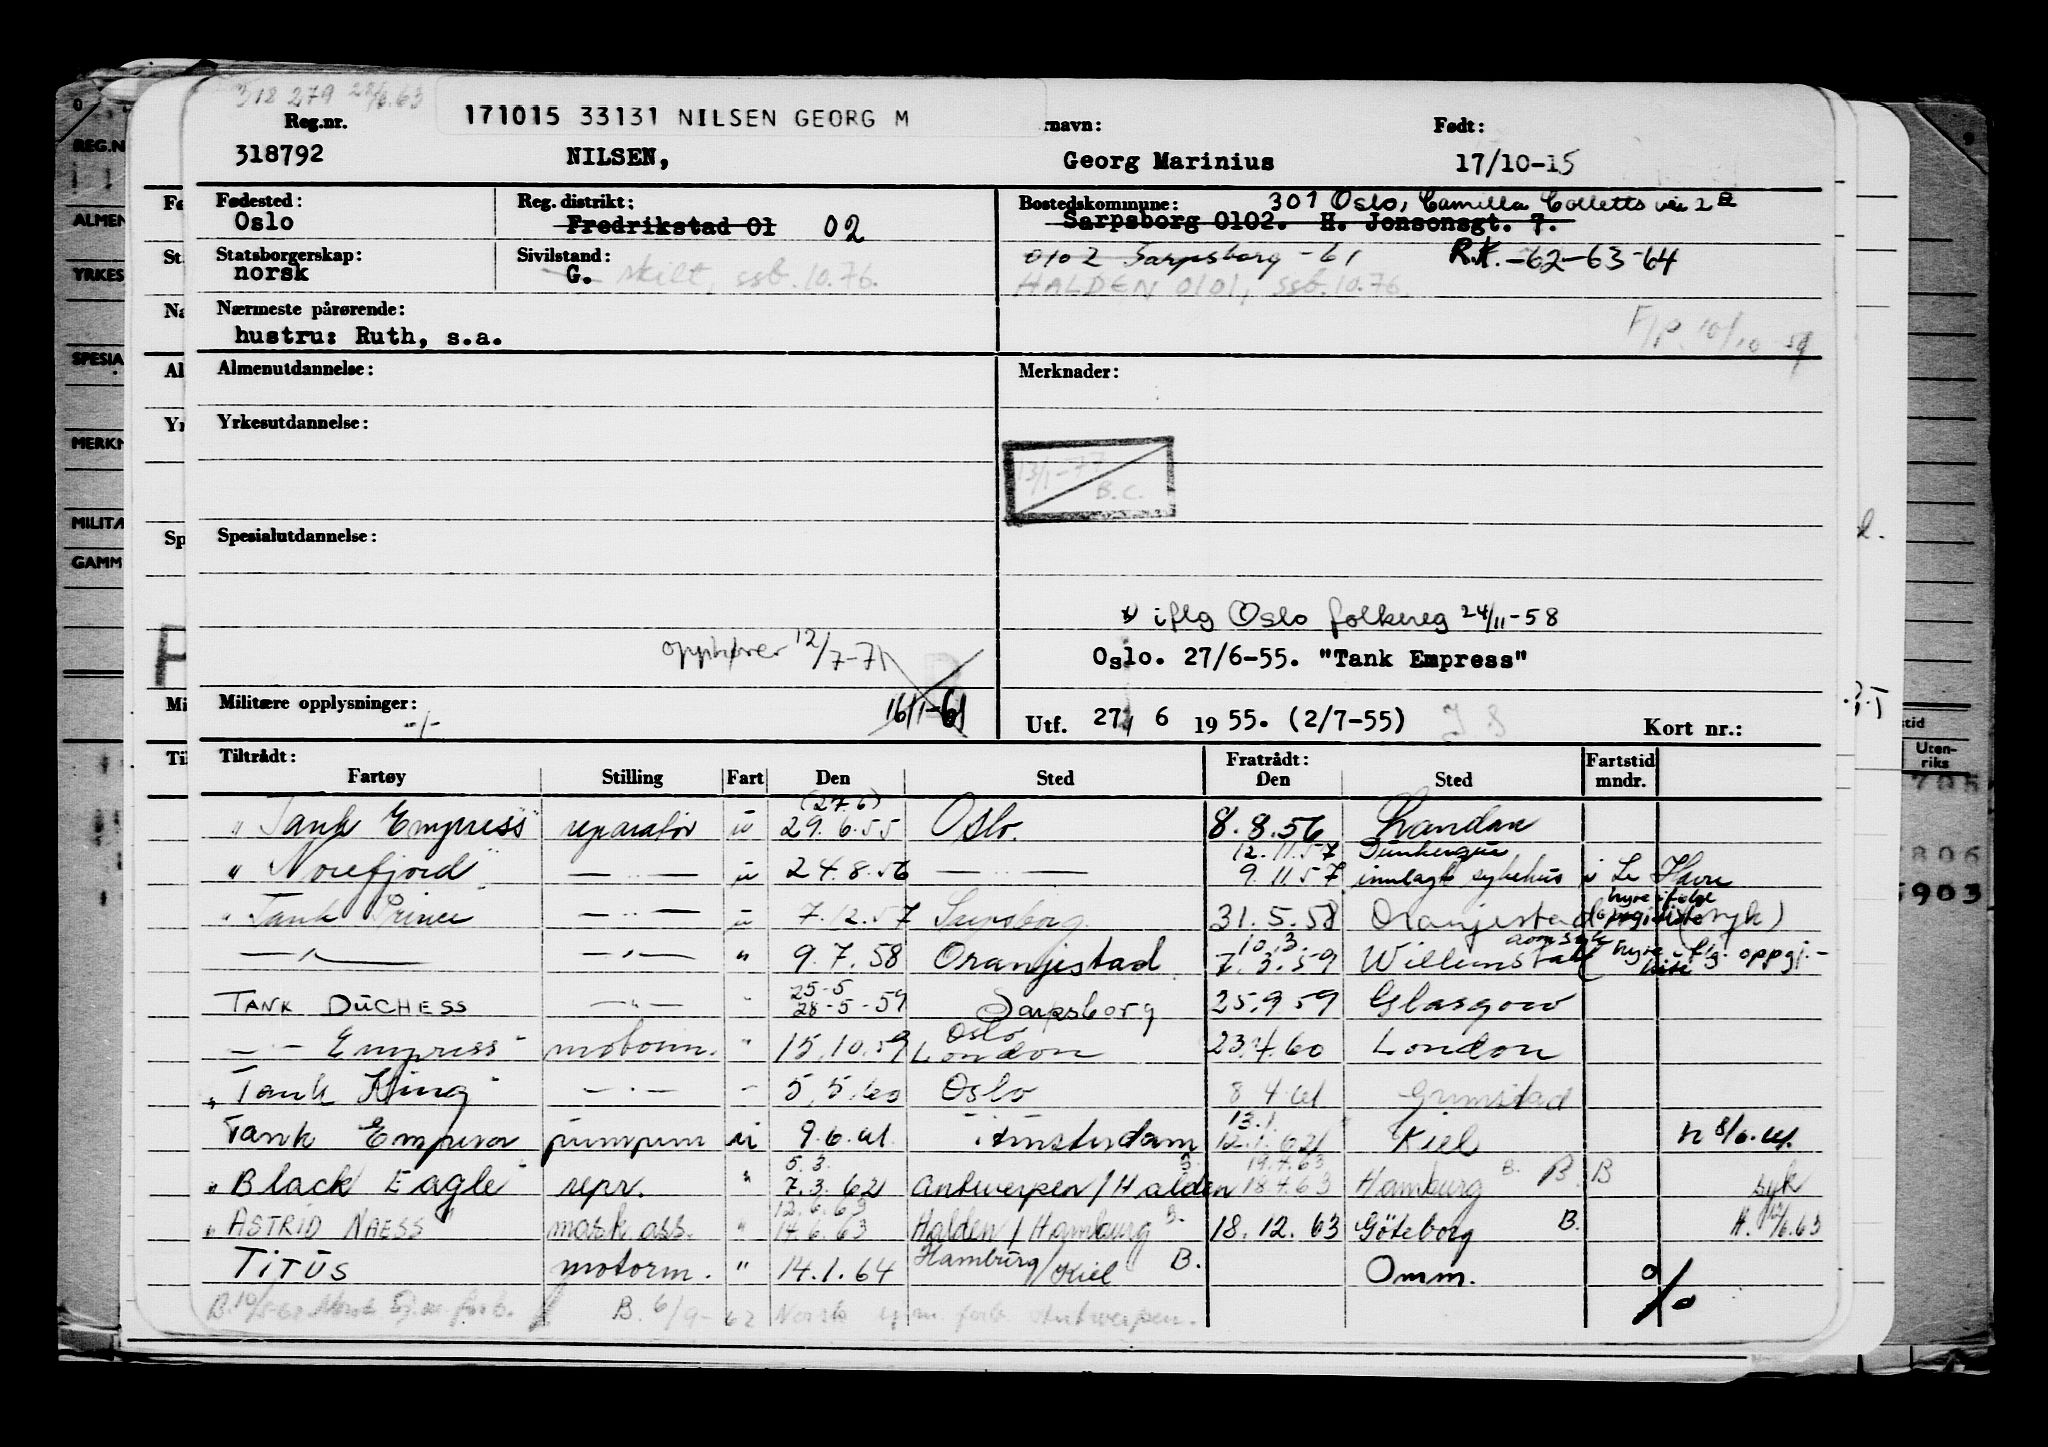 318 279 22/6.63
171015 33131 NILSEN GEORG M
Reg.nr. rnavn: Født:
318792 NILSEN, Georg Marinius 17/10-15
Fødested: Reg. distrikt: Bostedskommune: 301 Oslo, Camilla Colletts vei 2 B
Oslo Fredrikstad 01 02 Sarpsborg 0102. H. Jonsonsgt. 7.
Statsborgerskap: Sivilstand: 0102 Sarpsborg -61 R.K. -62-63-64
norsk G. skilt, ssb.10.76. HALDEN 0101, ssb.10.76.
Nærmeste pårørende: F/P. 10/10-59
hustru: Ruth, s.a.
Almenutdannelse: Merknader:
Yrkesutdannelse:
13/1-77
B.C.
Spesialutdannelse:
iflg Oslo folkereg 24/11-58
opphører 12/7-71 Oslo. 27/6-55. "Tank Empress"
Militære opplysninger: -/- 16/1-61 Utf. 27/6 1955. (2/7-55) Kort nr.:
Tiltrådt: Fratrådt: Fartstid
Fartøy Stilling Fart Den Sted Den Sted mndr.
(27.6)
"Tank Empress" reparatør u 29.6.55 Oslo. 8.8.56 London
12.11.57 Dunkerque
"Norefjord" — " — u 24.8.56 — " — 9.11.57 innlagt sykehus i Le Havre
hyre ifølge
"Tank Prince — " — u 7.12.57 Sarpsborg 31.5.58 Oranjestad (syk)
10.3.
— " — — " — " 9.7.58 Oranjestad 7.3.59 Willemstad hyre flg. oppgj.-
25-5
TANK DUCHESS — " — " 28-5-59 Sarpsborg 25.9.59 Glasgow
Oslo
— " — Empress" motorm. " 15.10.59 London 23.4.60 London
"Tank King" — " — " 5.5.60 Oslo 8.4.61 Grimstad
13.1.
Tank Emperor pumpem u 9.6.61. Amsterdam 12.1.62 Kiel H 8/6.61.
5.3. 19.4.63
"Black Eagle" repr. " 7.3.62 Antwerpen / Halden 18.4.63 Hamburg B. B. B syk
12.6.63
"ASTRID NAESS" mask.ass. " 14.6.63 Halden / Hamburg B. 18.12.63 Göteborg B. H. 12/6.63
TITUS motorm. " 14.1.64 Hamburg / Kiel B. Omm. %
B. 6/9-62 Norsk sjøm. forb. Antwerpen.
REG.N
ALMEN
YRKES
SPESIA
MERKN
MILITÆ
GAMM
Uten-
riks
903